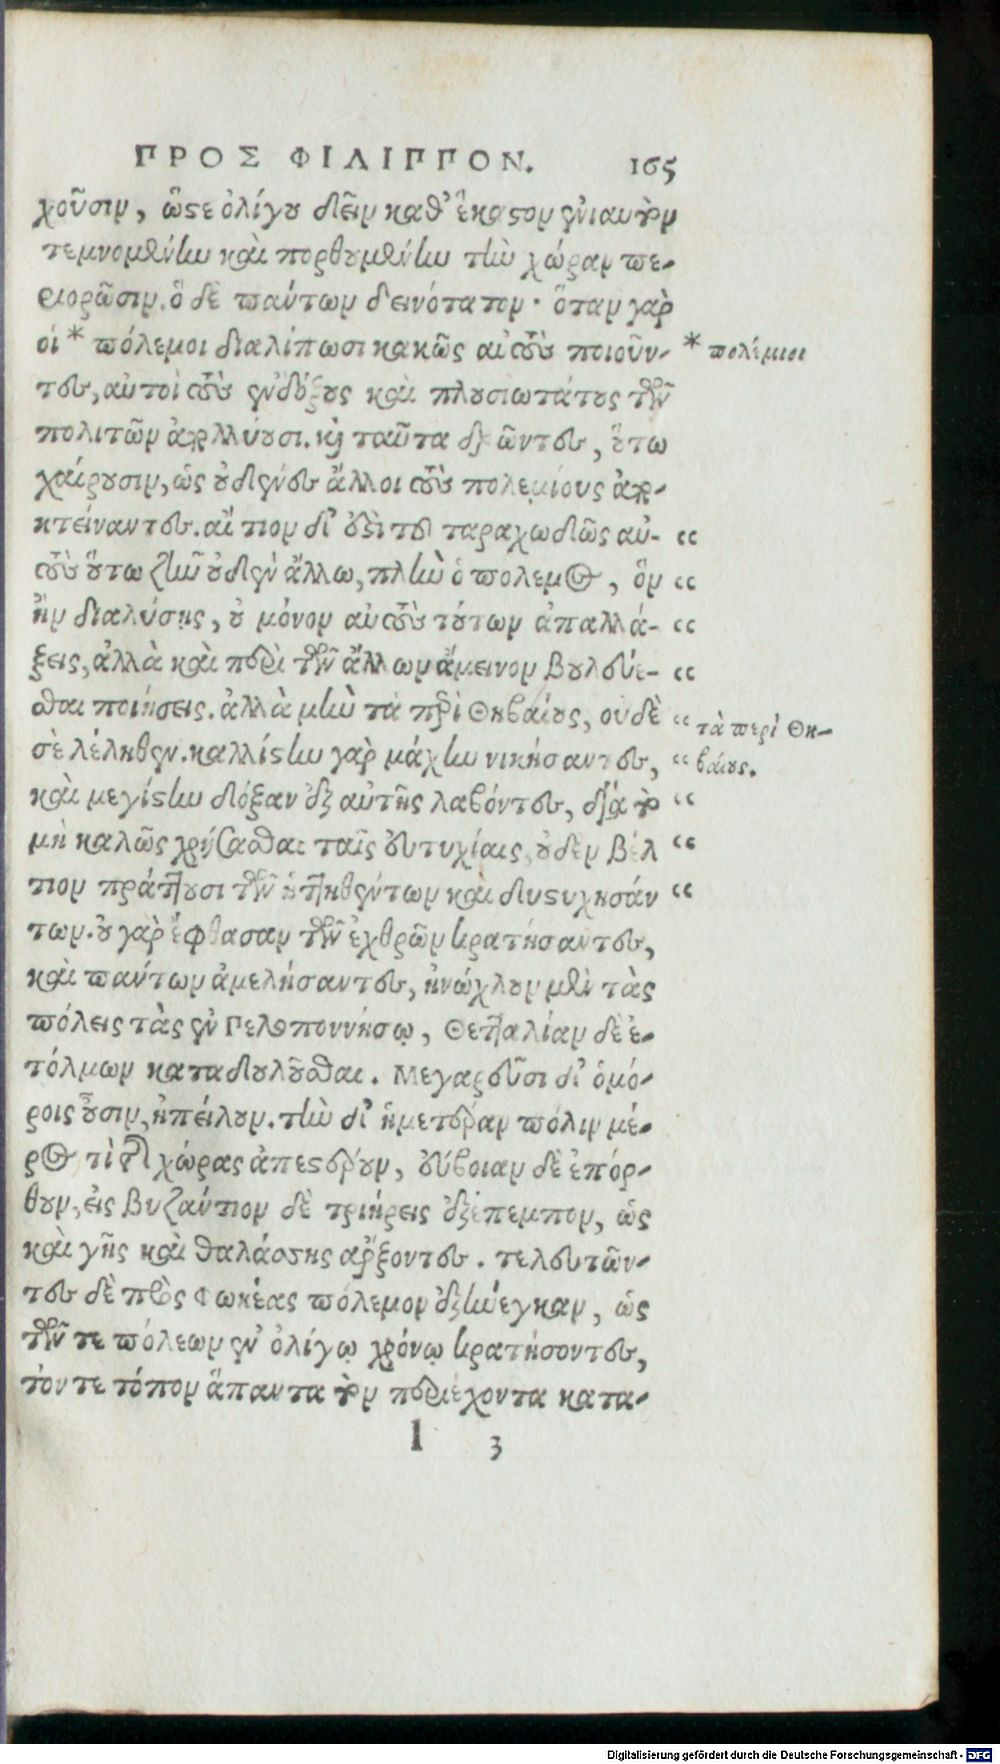 ΠΡΟΣ ΦΙΛΙΠΠΟΝ. 165
χοῦσιν, ὥστε ὀλίγου δεῖν καθ' ἕκαστον ἐνιαυτὸν
τεμνομένην καὶ πορθουμένην τὴν χώραν πε-
ριορῶσιν. ὃ δὲ πάντων δεινότατον· ὅταν γὰρ
οἱ * πόλεμοι διαλίπωσι κακῶς αὐτοὺς ποιοῦν-
* πολέμιοι
τες, αὐτοὶ τοὺς ἐνδόξους καὶ πλουσιωτάτους τῶν
πολιτῶν ἀπολλύουσι. καὶ ταῦτα δρῶντες, οὕτω
χαίρουσιν, ὡς οὐδένες ἄλλοι τοὺς πολεμίους ἀπο-
κτείναντες. αἴτιον δ' ἐστὶ τοῦ ταραχωδῶς αὐ- “
τοὺς οὕτω ζῆν οὐδὲν ἄλλο, πλὴν ὁ πόλεμος, ὃν “
ἢν διαλύσῃς, οὐ μόνον αὐτοὺς τούτων ἀπαλλά- “
ξεις, ἀλλὰ καὶ περὶ τῶν ἄλλων ἄμεινον βουλεύε- “
σθαι ποιήσεις. ἀλλὰ μὴν τὰ περὶ Θηβαίους, οὐδὲ “
τὰ περὶ Θη-
σὲ λέληθεν. καλλίστην γὰρ μάχην νικήσαντες, “
βαίους.
καὶ μεγίστην δόξαν ἐξ αὐτῆς λαβόντες, διὰ τὸ “
μὴ καλῶς χρήσασθαι ταῖς εὐτυχίαις, οὐδὲν βέλ “
τιον πράττουσι τῶν ἡττηθέντων καὶ δυστυχησάν “
των. οὐ γὰρ ἔφθασαν τῶν ἐχθρῶν κρατήσαντες,
καὶ πάντων ἀμελήσαντες, ἠνώχλουν μὲν τὰς
πόλεις τὰς ἐν Πελοποννήσῳ, Θετταλίαν δὲ ἐ-
τόλμων καταδουλοῦσθαι. Μεγαρεῦσι δ' ὁμό-
ροις οὖσιν, ἠπείλουν. τὴν δ' ἡμετέραν πόλιν μέ-
ρος τὶ τῆς χώρας ἀπεστέρουν, εὔβοιαν δὲ ἐπόρ-
θουν, εἰς βυζάντιον δὲ τριήρεις ἐξέπεμπον, ὡς
καὶ γῆς καὶ θαλάσσης ἄρξοντες. τελευτῶν-
τες δὲ πρὸς Φωκέας πόλεμον ἐξήνεγκαν, ὡς
τῶν τε πόλεων ἐν ὀλίγῳ χρόνῳ κρατήσοντες,
τόν τε τόπον ἅπαντα τὸν περιέχοντα κατα-
l 3
Digitalisierung gefördert durch die Deutsche Forschungsgemeinschaft - DFG